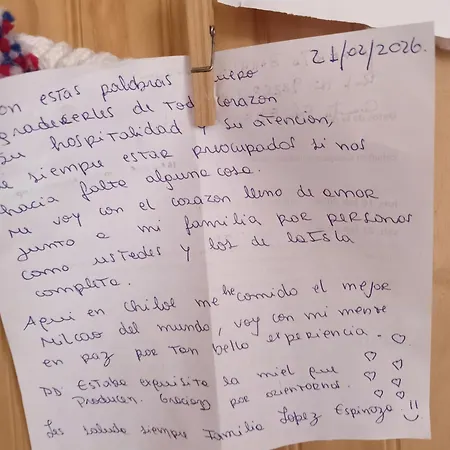 21/02/2026.
on estas palabras quiero
gradecerles de todo corazon
su hospitalidad y su atencion,
de siempre estar preocupados si nos
hacia falta alguna cosa.
Me voy con el corazon lleno de amor
junto a mi familia por personas
como ustedes y los de la Isla
completa.
Aqui en chiloe me he comido el mejor
Milcao del mundo, voy con mi mente
en paz por tan bello experiencia.
PD Estaba exquisito la miel que
Producen. Gracias por orientarnos.
Les saluda siempre Familia Lopez Espinoza :)